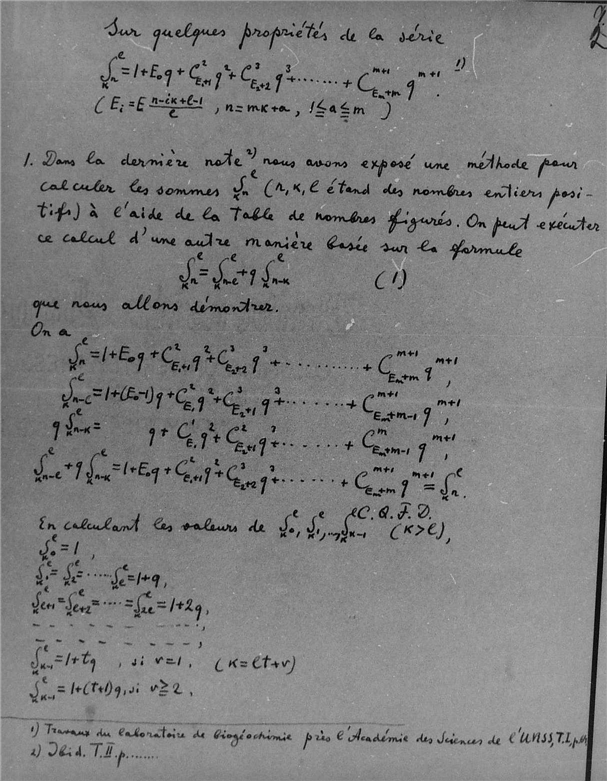 Sur quelques propriétés de la série
∫ₖₙᵉ = 1+E₀q + C²_{E₁+1} q² + C³_{E₂+2} q³ +······+ C^{m+1}_{E_m+m} q^{m+1}. ¹⁾
( E_i = E (n-iκ+ℓ-1)/ℓ , n=mκ+a, 1≦a≦m )
1. Dans la dernière note ²⁾ nous avons exposé une méthode pour
calculer les sommes ∫ₖₙᵉ (n, κ, l étand des nombres entiers posi-
tifs) à l'aide de la Table de nombres figurés. On peut exécuter
ce calcul d'une autre manière basée sur la formule
∫ₖₙᵉ = ∫ₖₙ₋ₑᵉ + q ∫ₖₙ₋ₖᵉ (1)
que nous allons démontrer.
On a
∫ₖₙᵉ = 1+E₀q + C²_{E₁+1} q² + C³_{E₂+2} q³ +········+ C^{m+1}_{E_m+m} q^{m+1},
∫ₖₙ₋ₑᵉ = 1+(E₀-1)q + C²_{E₁} q² + C³_{E₂+1} q³ +········+ C^{m+1}_{E_m+m-1} q^{m+1},
q ∫ₖₙ₋ₖᵉ = q + C¹_{E₁} q² + C²_{E₂+1} q³ +········+ C^m_{E_m+m-1} q^{m+1},
∫ₖₙ₋ₑᵉ + q ∫ₖₙ₋ₖᵉ = 1+E₀q + C²_{E₁+1} q² + C³_{E₂+2} q³ +······+ C^{m+1}_{E_m+m} q^{m+1} = ∫ₖₙᵉ.
C. Q. F. D.
En calculant les valeurs de ∫ₖ₀ᵉ, ∫ₖ₁ᵉ, ..., ∫ₖₖ₋₁ᵉ (κ>ℓ),
∫ₖ₀ᵉ = 1 ,
∫ₖ₁ᵉ = ∫ₖ₂ᵉ = ····· ∫ₖₑᵉ = 1+q,
∫ₖₑ₊₁ᵉ = ∫ₖₑ₊₂ᵉ = ····· = ∫ₖ₂ₑᵉ = 1+2q,
- - - - - - - - - - ,
- - - - - - - - - - ,
∫ₖₖ₋₁ᵉ = 1+tq , si v=1. (κ=ℓt+v)
∫ₖₖ₋₁ᵉ = 1+(t+1)q, si v≧2,
1) Travaux du laboratoire de biogéochimie près l'Académie des Sciences de l'URSS, T. I, p.
2) Ibid. T. II. p........